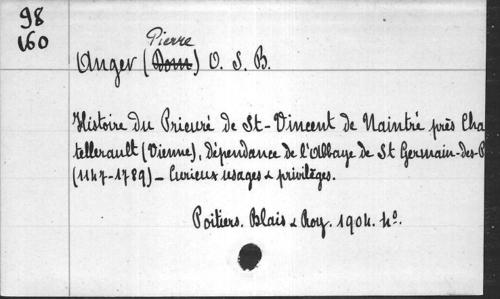 98
160
Pierre
Anger (Dom) O. S. B.
Histoire du Prieuré de St-Vincent de Naintré près Cha
tellerault (Vienne), Dépendance de l'Abbaye de St Germain-des-P
(1147-1789) - Curieux usages & privilèges.
Poitiers. Blais & Roy. 1904. 4º.